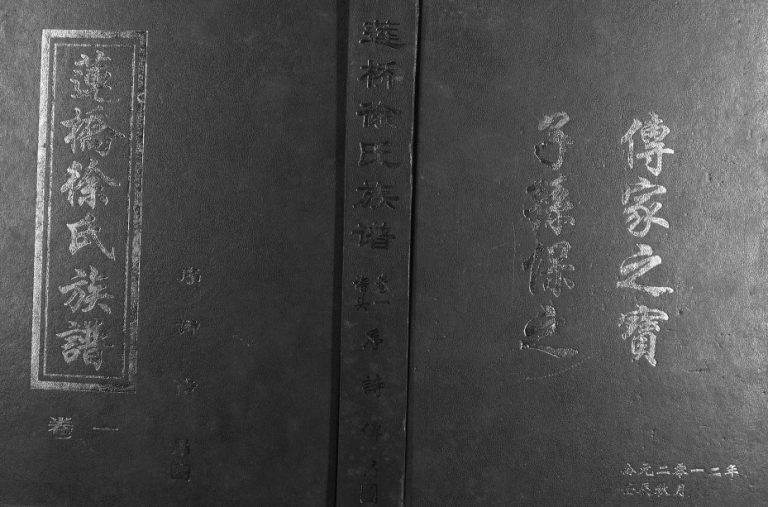 蓮橋徐氏族譜
卷一
蓮桥徐氏族谱
卷一
傳家之寶
子孫保之
公元二零一二年
壬辰秋月